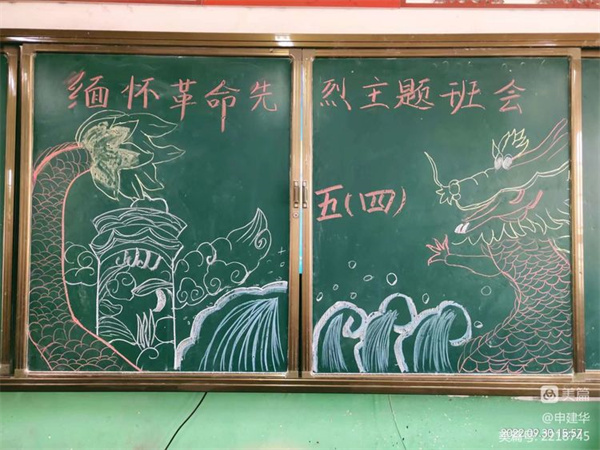 缅怀革命先烈主题班会
五(四)
美篇
@申建华
2022.09.30 15:57
美篇号:2218745